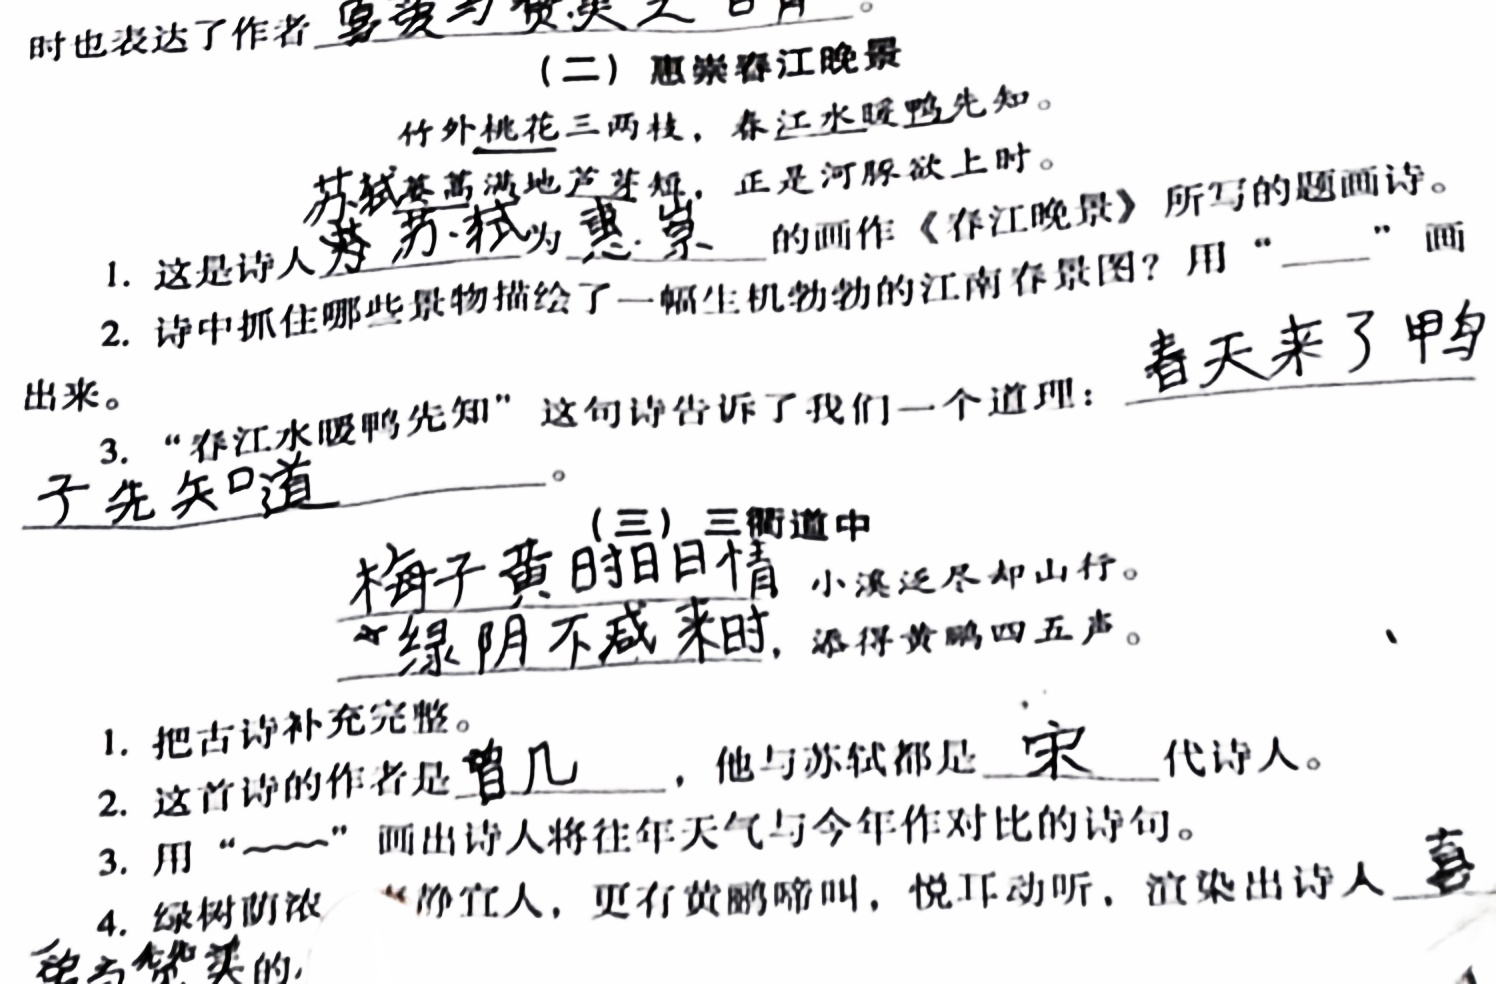 时也表达了作者喜爱与赞美之
(二) 惠崇春江晚景
竹外桃花三两枝，春江水暖鸭先知。
苏轼蒌蒿满地芦芽短，正是河豚欲上时。
1. 这是诗人苏轼为惠崇的画作《春江晚景》所写的题画诗。
2. 诗中抓住哪些景物描绘了一幅生机勃勃的江南春景图？用“___”画
出来。
3. “春江水暖鸭先知”这句诗告诉了我们一个道理：春天来了鸭
子先知道。
(三) 三衢道中
梅子黄时日日情 小溪泛尽却山行。
绿阴不减来时，添得黄鹂四五声。
1. 把古诗补充完整。
2. 这首诗的作者是曾几，他与苏轼都是宋代诗人。
3. 用“~~~”画出诗人将往年天气与今年作对比的诗句。
4. 绿树阴浓 静宜人，更有黄鹂啼叫，悦耳动听，渲染出诗人喜
与赞美的